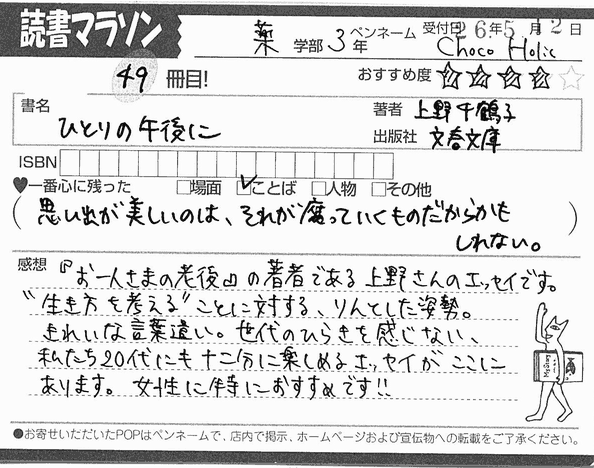 読書マラソン
薬 学部 3年 ペンネーム Choco Holic
受付日 26年5月2日
49 冊目!
おすすめ度 ★★★★☆
書名 ひとりの午後に
著者 上野千鶴子
出版社 文春文庫
ISBN
♥一番心に残った □場面 ☑ことば □人物 □その他
(思い出が美しいのは、それが腐っていくものだからかも
しれない。)
感想 『お一人さまの老後』の著者である上野さんのエッセイです。
"生き方を考える"ことに対する、りんとした姿勢。
きれいな言葉遣い。世代のひらきを感じない、
私たち20代にも十二分に楽しめるエッセイがここに
あります。女性に特におすすめです!!
●お寄せいただいたPOPはペンネームで、店内で掲示、ホームページおよび宣伝物への転載をご了承ください。